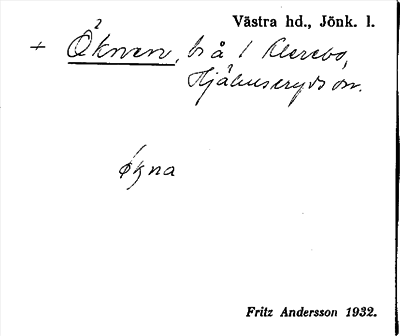 Västra hd., Jönk. l.
+ Öknen, på 1 Klerebo,
Hjälmseryds sn.
økna
Fritz Andersson 1932.